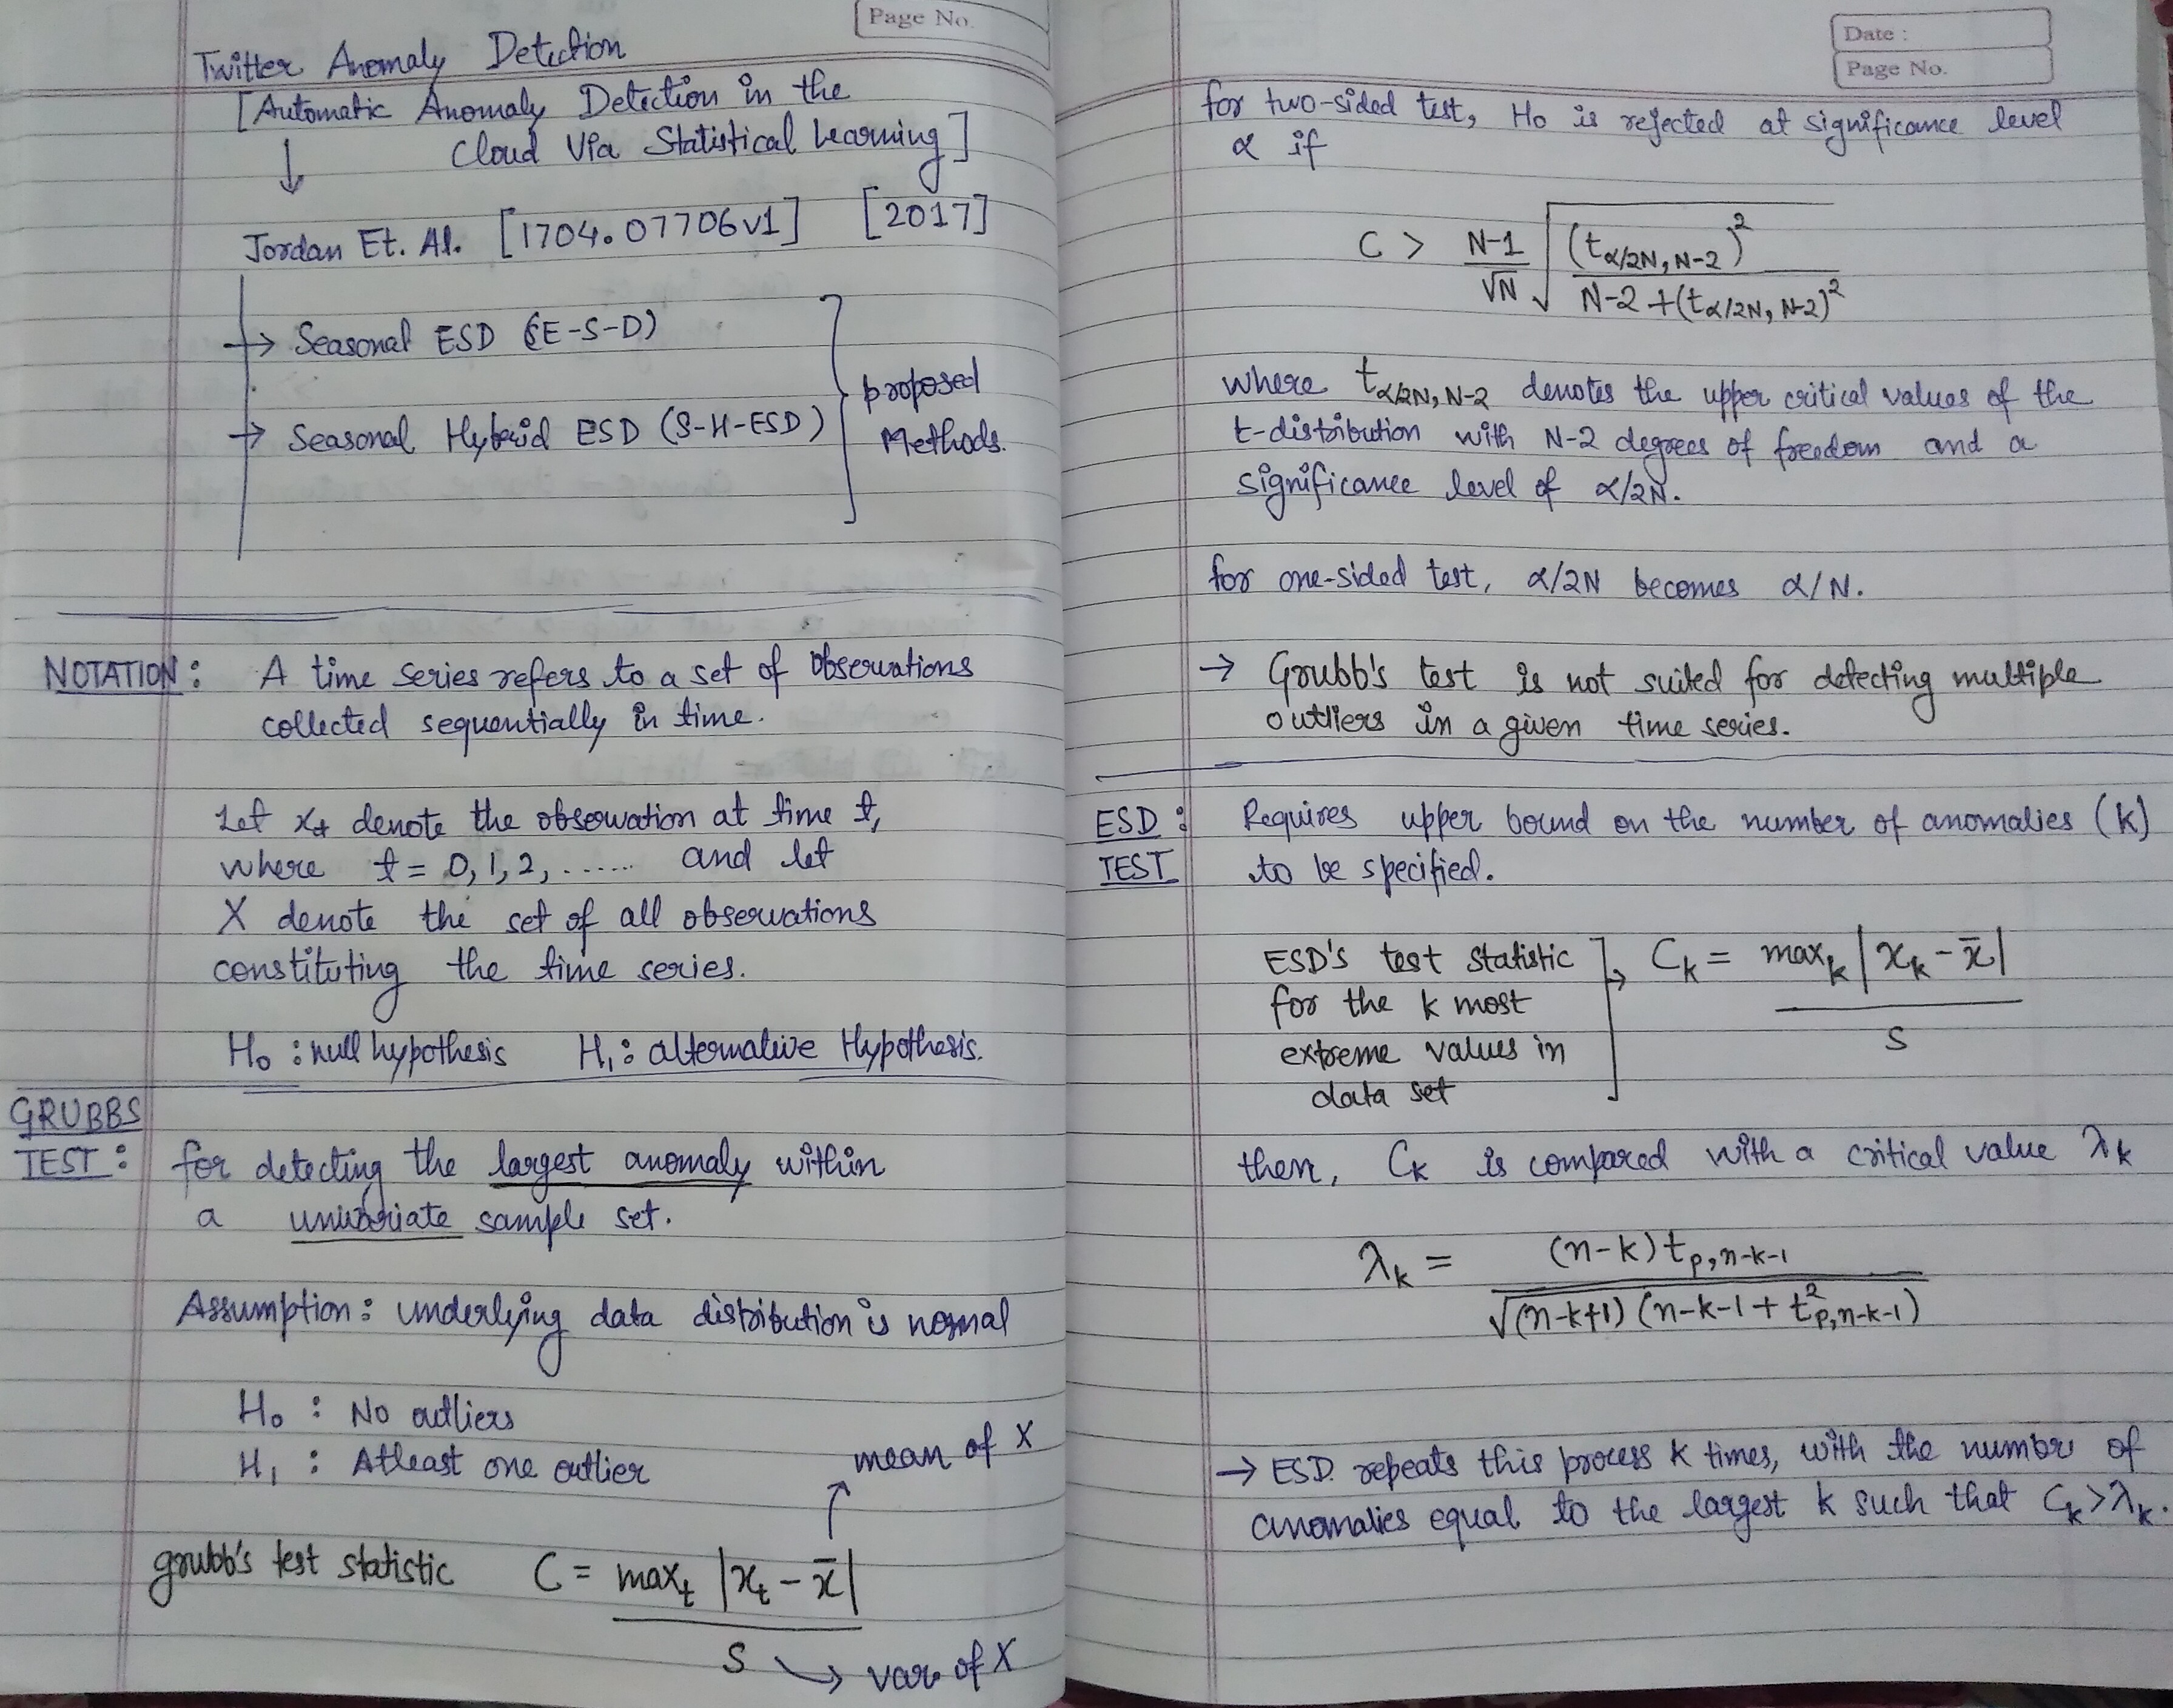 Page No.
Twitter Anomaly Detection
[Automatic Anomaly Detection in the
Cloud Via Statistical Learning]
↓
Jordan Et. Al. [1704.07706v1] [2017]
→ Seasonal ESD (SE-S-D)
→ Seasonal Hybrid ESD (S-H-ESD)
proposed
Methods.
NOTATION: A time series refers to a set of observations
collected sequentially in time.
Let xₜ denote the observation at time t,
where t = 0, 1, 2, ...... and let
X denote the set of all observations
constituting the time series.
H₀ : null hypothesis H₁ : alternative Hypothesis.
GRUBBS
TEST : for detecting the largest anomaly within
a univariate sample set.
Assumption: underlying data distribution is normal
H₀ : No outliers
H₁ : Atleast one outlier
mean of X
grubb's test statistic C = maxₜ |xₜ - x̄|
S → var of X
Date :
Page No.
for two-sided test, H₀ is rejected at significance level
α if
C > N-1/√N √((t_{α/2N, N-2})² / N-2+(t_{α/2N, N-2})²)
where t_{α/2N, N-2} denotes the upper critical values of the
t-distribution with N-2 degrees of freedom and a
significance level of α/2N.
for one-sided test, α/2N becomes α/N.
→ Grubb's test is not suited for detecting multiple
outliers in a given time series.
ESD : Requires upper bound on the number of anomalies (k)
TEST to be specified.
ESD's test statistic
for the k most
extreme values in
data set
Cₖ = maxₖ |xₖ - x̄|
S
then, Cₖ is compared with a critical value λₖ
λₖ = (n-k) t_{p, n-k-1}
√(n-k+1) (n-k-1 + t²_{p, n-k-1})
→ ESD repeats this process k times, with the number of
anomalies equal to the largest k such that Cₖ > λₖ.